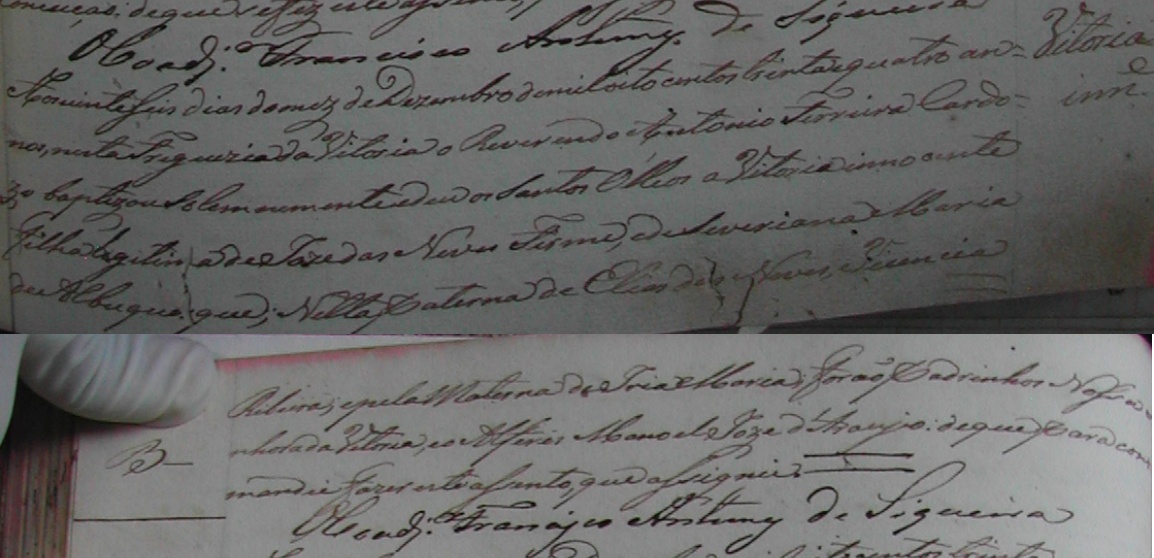 de que se fez este assento,
O Coadj. Francisco Antunz. de Siqueira
Aos vinte seis dias do mez de Dezembro de mil oito centos trinta e quatro an=
Vitoria
inn.e
nos, nesta Freguezia da Vitoria o Reverendo Antonio Ferreira Cardo=
zo baptizou solemnemente e deu os Santos Olleos a Vitoria innocente
Filha legitima de Joze das Neves Firme, e de Severiana Maria
de Albuquerque; Netta Paterna de Elias das Neves, Vicencia
Ribeira; e pela Materna de Maria; forão Padrinhos Nossa Se
nhora da Vitoria, e o Alferes Manoel Joze de Araujo: de que para con
mandei fazer este assento, que assignei.
B
O Coadj. Francisco Antunz de Siqueira